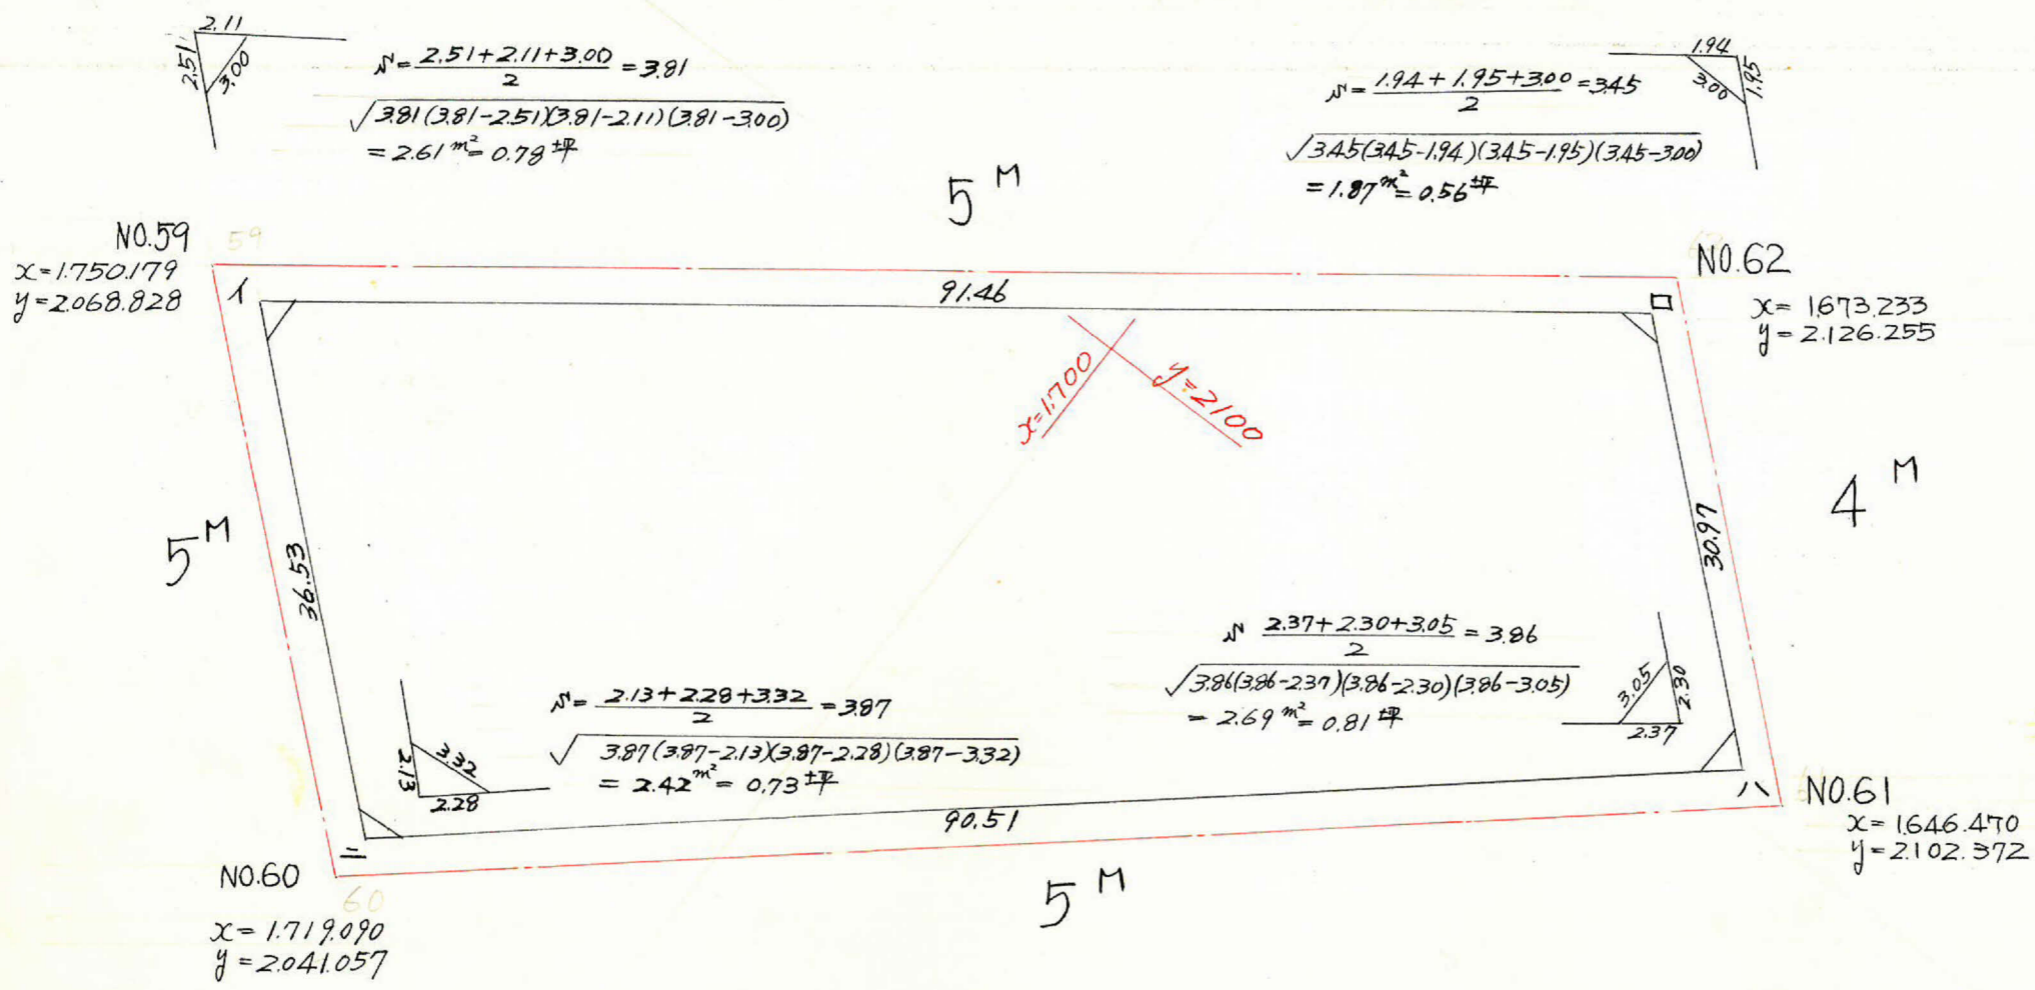 2.11
2.51
3.00
s=(2.51+2.11+3.00)/2=3.81
√3.81(3.81-2.51)(3.81-2.11)(3.81-3.00)
=2.61m²=0.78坪
1.94
1.95
3.00
s=(1.94+1.95+3.00)/2=3.45
√3.45(3.45-1.94)(3.45-1.95)(3.45-3.00)
=1.87m²=0.56坪
5M
NO.59
59
x=1.750.179
y=2.068.828
イ
91.46
ロ
NO.62
x=1.673.233
y=2.126.255
x=1.700
y=2100
5M
36.53
30.97
4M
s (2.37+2.30+3.05)/2=3.86
√3.86(3.86-2.37)(3.86-2.30)(3.86-3.05)
=2.69m²=0.81坪
3.05
2.30
2.37
s=(2.13+2.28+3.32)/2=3.87
√3.87(3.87-2.13)(3.87-2.28)(3.87-3.32)
=2.42m²=0.73坪
3.32
2.13
2.28
90.51
ハ
NO.61
x=1.646.470
y=2.102.372
ニ
NO.60
60
x=1.719.090
y=2.041.057
5M